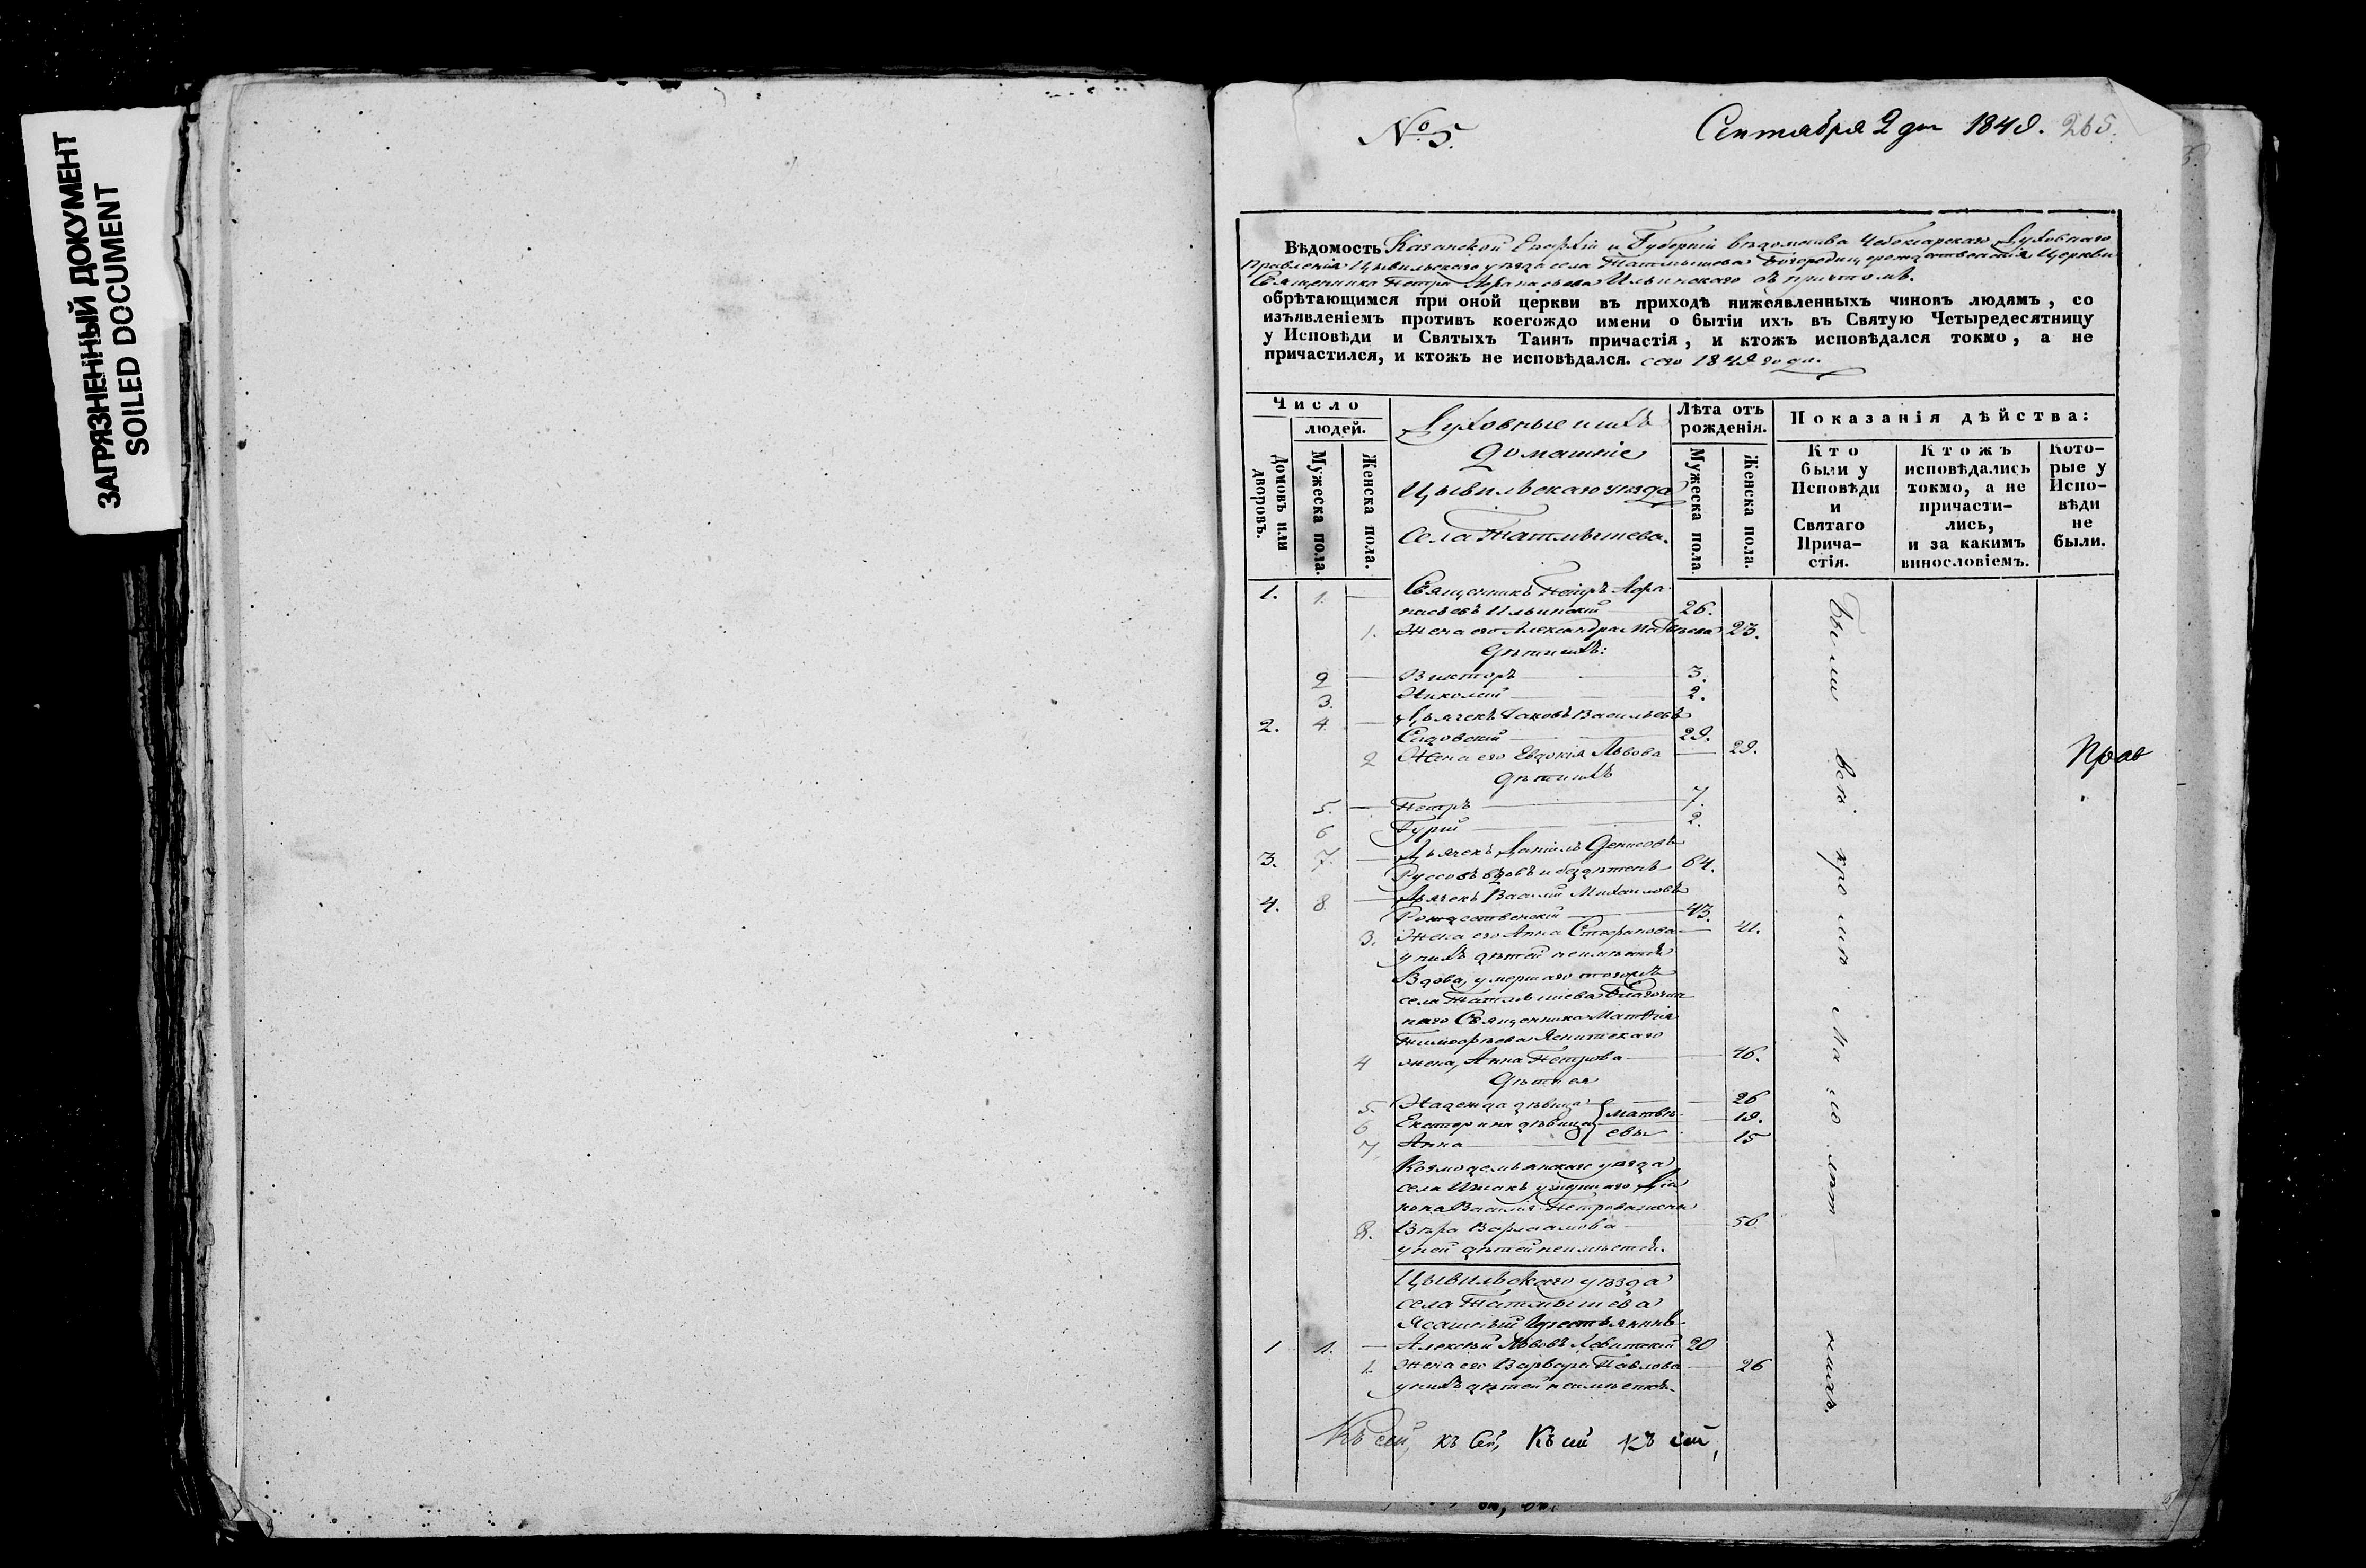 ЗАГРЯЗНЕННЫЙ ДОКУМЕНТ
SOILED DOCUMENT
№ 5.
Сентября 2 дня 1849. 265.
Вѣдомость Казанской Епархіи и Губерніи вѣдомства Чебоксарскаго Духовнаго
Правленія Цывильскаго уѣзда села Татмышева Богородицерождественскія Церкви
Священника Петра Афанасьева Ильинскаго съ причтомъ.
обрѣтающимся при оной церкви въ приходѣ нижеявленныхъ чиновъ людямъ, со
изъявленіемъ противъ коегождо имени о бытіи ихъ въ Святую Четыредесятницу
у Исповѣди и Святыхъ Таинъ причастія, и ктожъ исповѣдался токмо, а не
причастился, и ктожъ не исповѣдался. сего 1849 года.
Число
людей.
Домовъ или дворовъ.
Мужеска пола.
Женска пола.
Духовные и ихъ
домашніе
Цывильскаго уѣзда
села Татмышева.
Лѣта отъ
рожденія.
Мужеска пола.
Женска пола.
Показанія дѣйства:
Кто
были у
Исповѣди
и
Святаго
Прича-
стія.
Ктожъ
исповѣдались
токмо, а не
причасти-
лись,
и за какимъ
винословіемъ.
Кото-
рые у
Испо-
вѣди
не
были.
1. 1. — Священникъ Петръ Афа-
насьевъ Ильинскій — 26.
1. Жена его Александра Матвѣева 23.
дѣти ихъ:
2 — Викторъ — 3.
3. Николай — 2.
2. 4 — Дьячекъ Іаковъ Васильевъ
Садовскій — 29.
2 Жена его Евдокія Львова — 29.
дѣти ихъ
5. — Петръ — 7.
6 Гурій — 2.
3. 7. — Дьячекъ Даніилъ Денисовъ
Руссовъ вдовъ и бездѣтенъ 64.
4. 8 — Дьячекъ Василій Михаиловъ
Рождественскій — 43.
3. Жена его Анна Стефанова — 41.
у нихъ дѣтей неимѣется
Вдова, умершаго тогожъ
села Татмышева Благочин
наго Священника Матѳія
Тимофѣева Ясницкаго
4 жена, Анна Петрова — 46.
дѣти ея
5. Надежда дѣвица — 26
6 Екатерина дѣвица } Матвѣ- 19.
7, Анна — евы 15
Козмодемьянскаго уѣзда
села умершаго Діа
кона Василія Петрова жена
8. Вѣра Варлаамова 56
у ней дѣтей неимѣется.
Цывильскаго уѣзда
села Татмышева
Ясашный Крестьянинъ
1 1. — Алексѣй Львовъ Левитскій 20
1. Жена его Варвара Павлова — 26
у нихъ дѣтей неимѣется.
Были всѣ кромѣ малолѣт — нихъ.
Къ сей, къ сей, Къ сей къ сей,